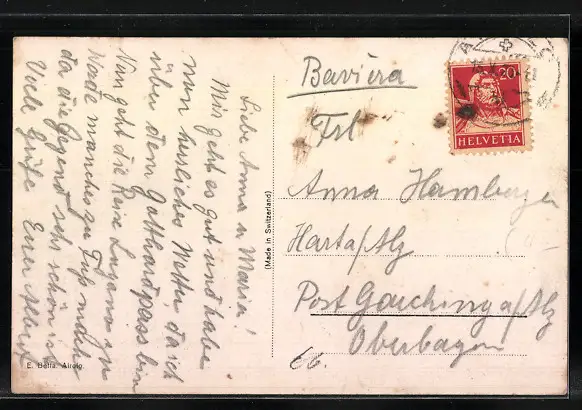 Liebe Anna u Maria!
Mir geht es gut und habe
nun herliches Wetter, da ich
über dem Gotthardpass bin
Nun geht die Reise Lugano zu
Werde manches zu Fuß machen
da die Gegend sehr schön ist
Viele Grüße Euer Albert
E. Beffa. Airolo.
(Made in Switzerland)
Bavièra
Frl
Anna Hamberger
Harta/Alz
Post Garching a/Alz
Oberbayern
66.
20
HELVETIA